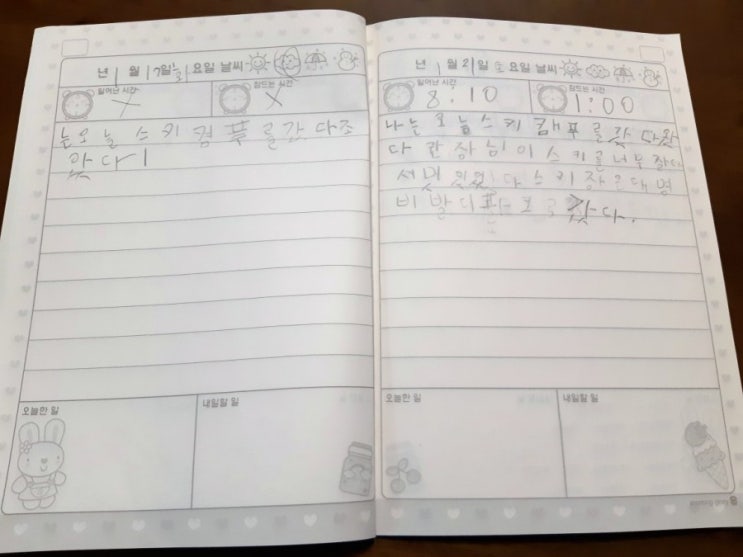 년 1 월 17일 요일 날씨
일어난 시간 X 잠드는 시간 X
는오늘 스키 켐푸 를갔 다조
았다
오늘한 일 내일할 일
년 1 월 21 일 토 요일 날씨
일어난 시간 8:10 잠드는 시간 1:00
나는 오늘스키 캠푸를 갔다왔
다 관장님이 스키를너무 잘타
서 멋있었다스키장은대명
비발디파크로 갔다.
오늘한 일 내일할 일
morning glory